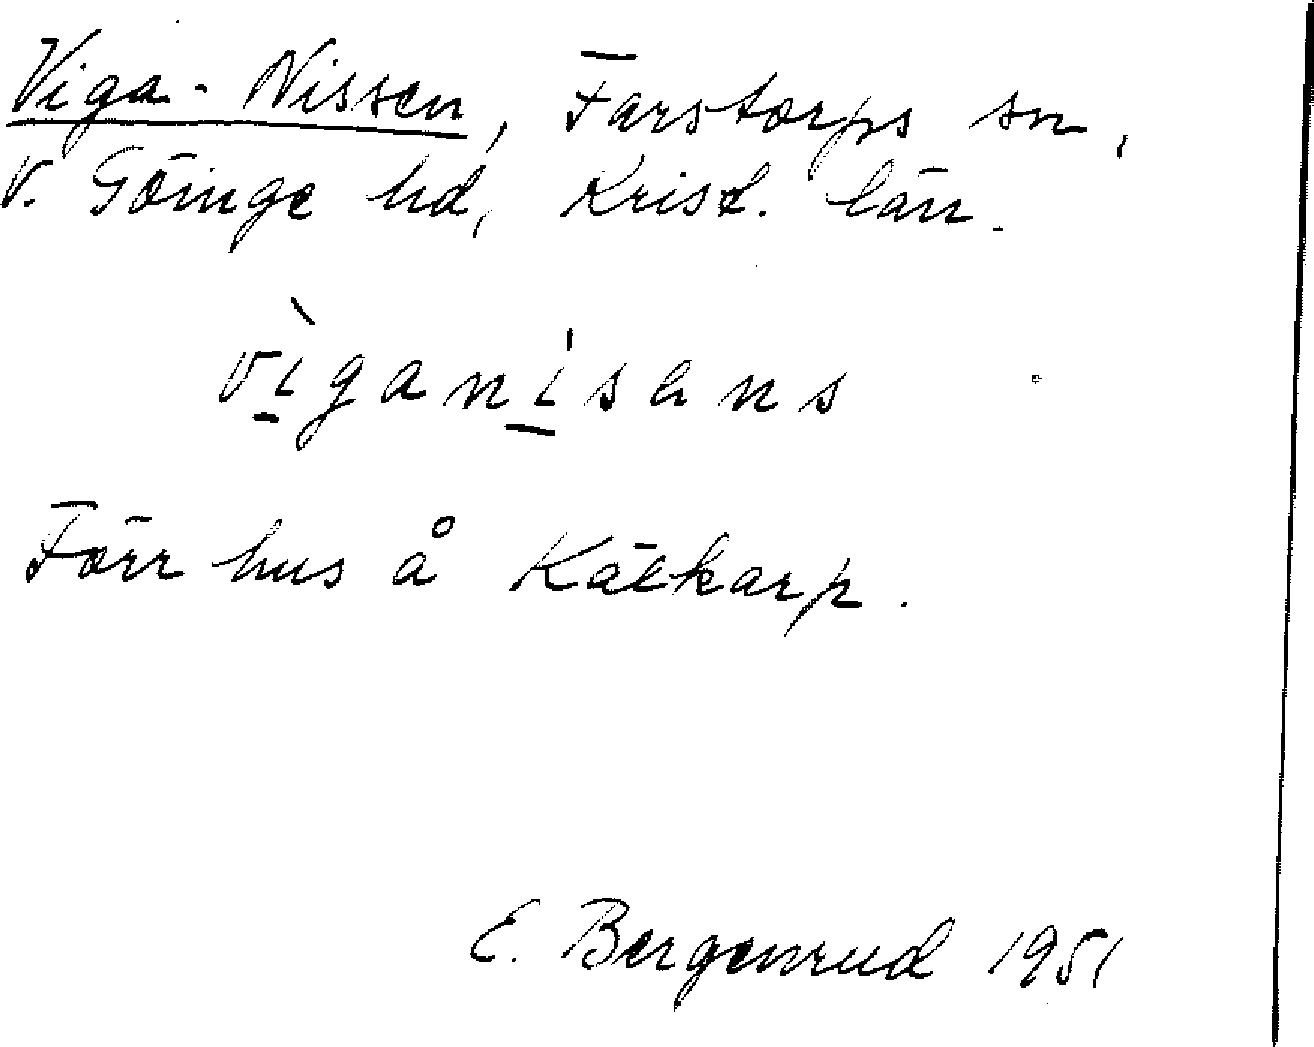 Viga-Nissen, Farstorps sn,
V. Göinge hd, Krist. län.
vìganísans
Förr hus å Kälkarp.
E. Bergenrud 1951